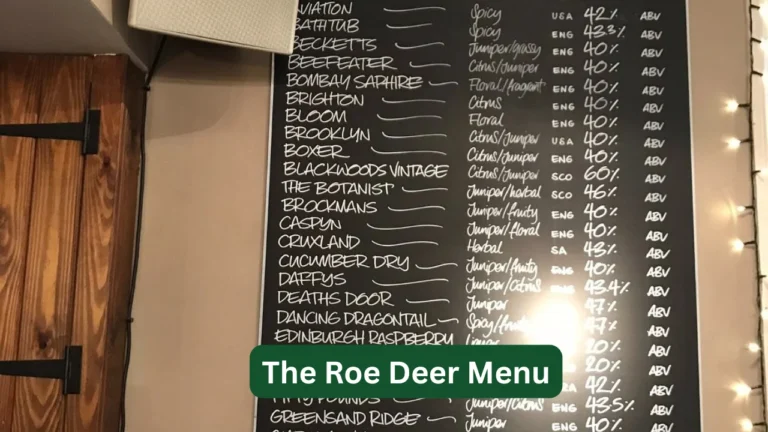 AVIATION Spicy USA 42% ABV
BATHTUB Spicy ENG 43.3% ABV
BECKETTS Juniper/grassy ENG 40% ABV
BEEFEATER Citrus/Juniper ENG 40% ABV
BOMBAY SAPHIRE Floral/fragrant ENG 40% ABV
BRIGHTON Citrus ENG 40% ABV
BLOOM Floral ENG 40% ABV
BROOKLYN Citrus/Juniper USA 40% ABV
BOXER Citrus/Juniper ENG 40% ABV
BLACKWOODS VINTAGE Citrus/Juniper SCO 60% ABV
THE BOTANIST Juniper/herbal SCO 46% ABV
BROCKMANS Juniper/fruity ENG 40% ABV
CASPYN Juniper/floral ENG 40% ABV
CRUXLAND Herbal SA 43% ABV
CUCUMBER DRY Juniper/fruity ENG 40% ABV
DAFFYS Juniper/Citrus 43.4% ABV
DEATHS DOOR Juniper 47% ABV
DANCING DRAGONTAIL Spicy/fruity 47% ABV
EDINBURGH RASPBERRY 20% ABV
20% ABV
The Roe Deer Menu
42% ABV
POUNDS Juniper/Citrus ENG 43.5% ABV
GREENSAND RIDGE Juniper ENG 40% ABV